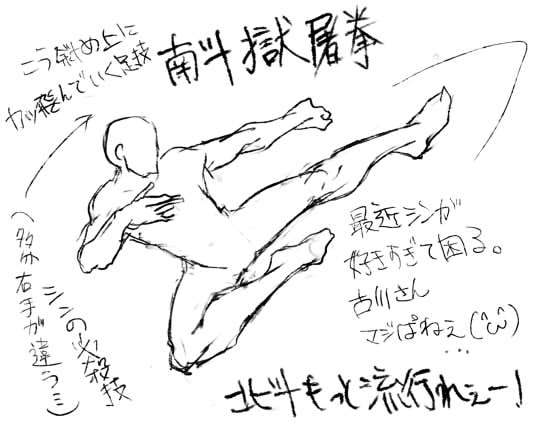 南斗獄屠拳
こう斜め上に
カッ飛んでいく足技
シンの必殺技
(多分右手が違うミ)
最近シンが
好きすぎて困る。
古川さん
マジぱねぇ(^ω^)
…
北斗もっと流行れぇー!